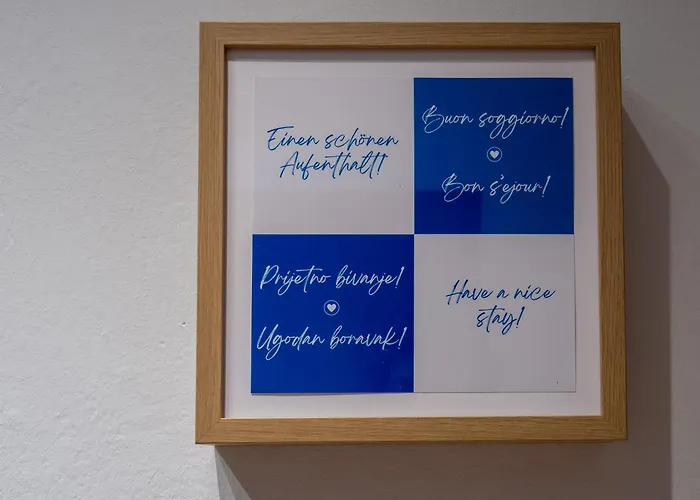 Einen schönen
Aufenthalt!
Buon soggiorno!
Bon s'ejour!
Prijetno bivanje!
Ugodan boravak!
Have a nice
stay!